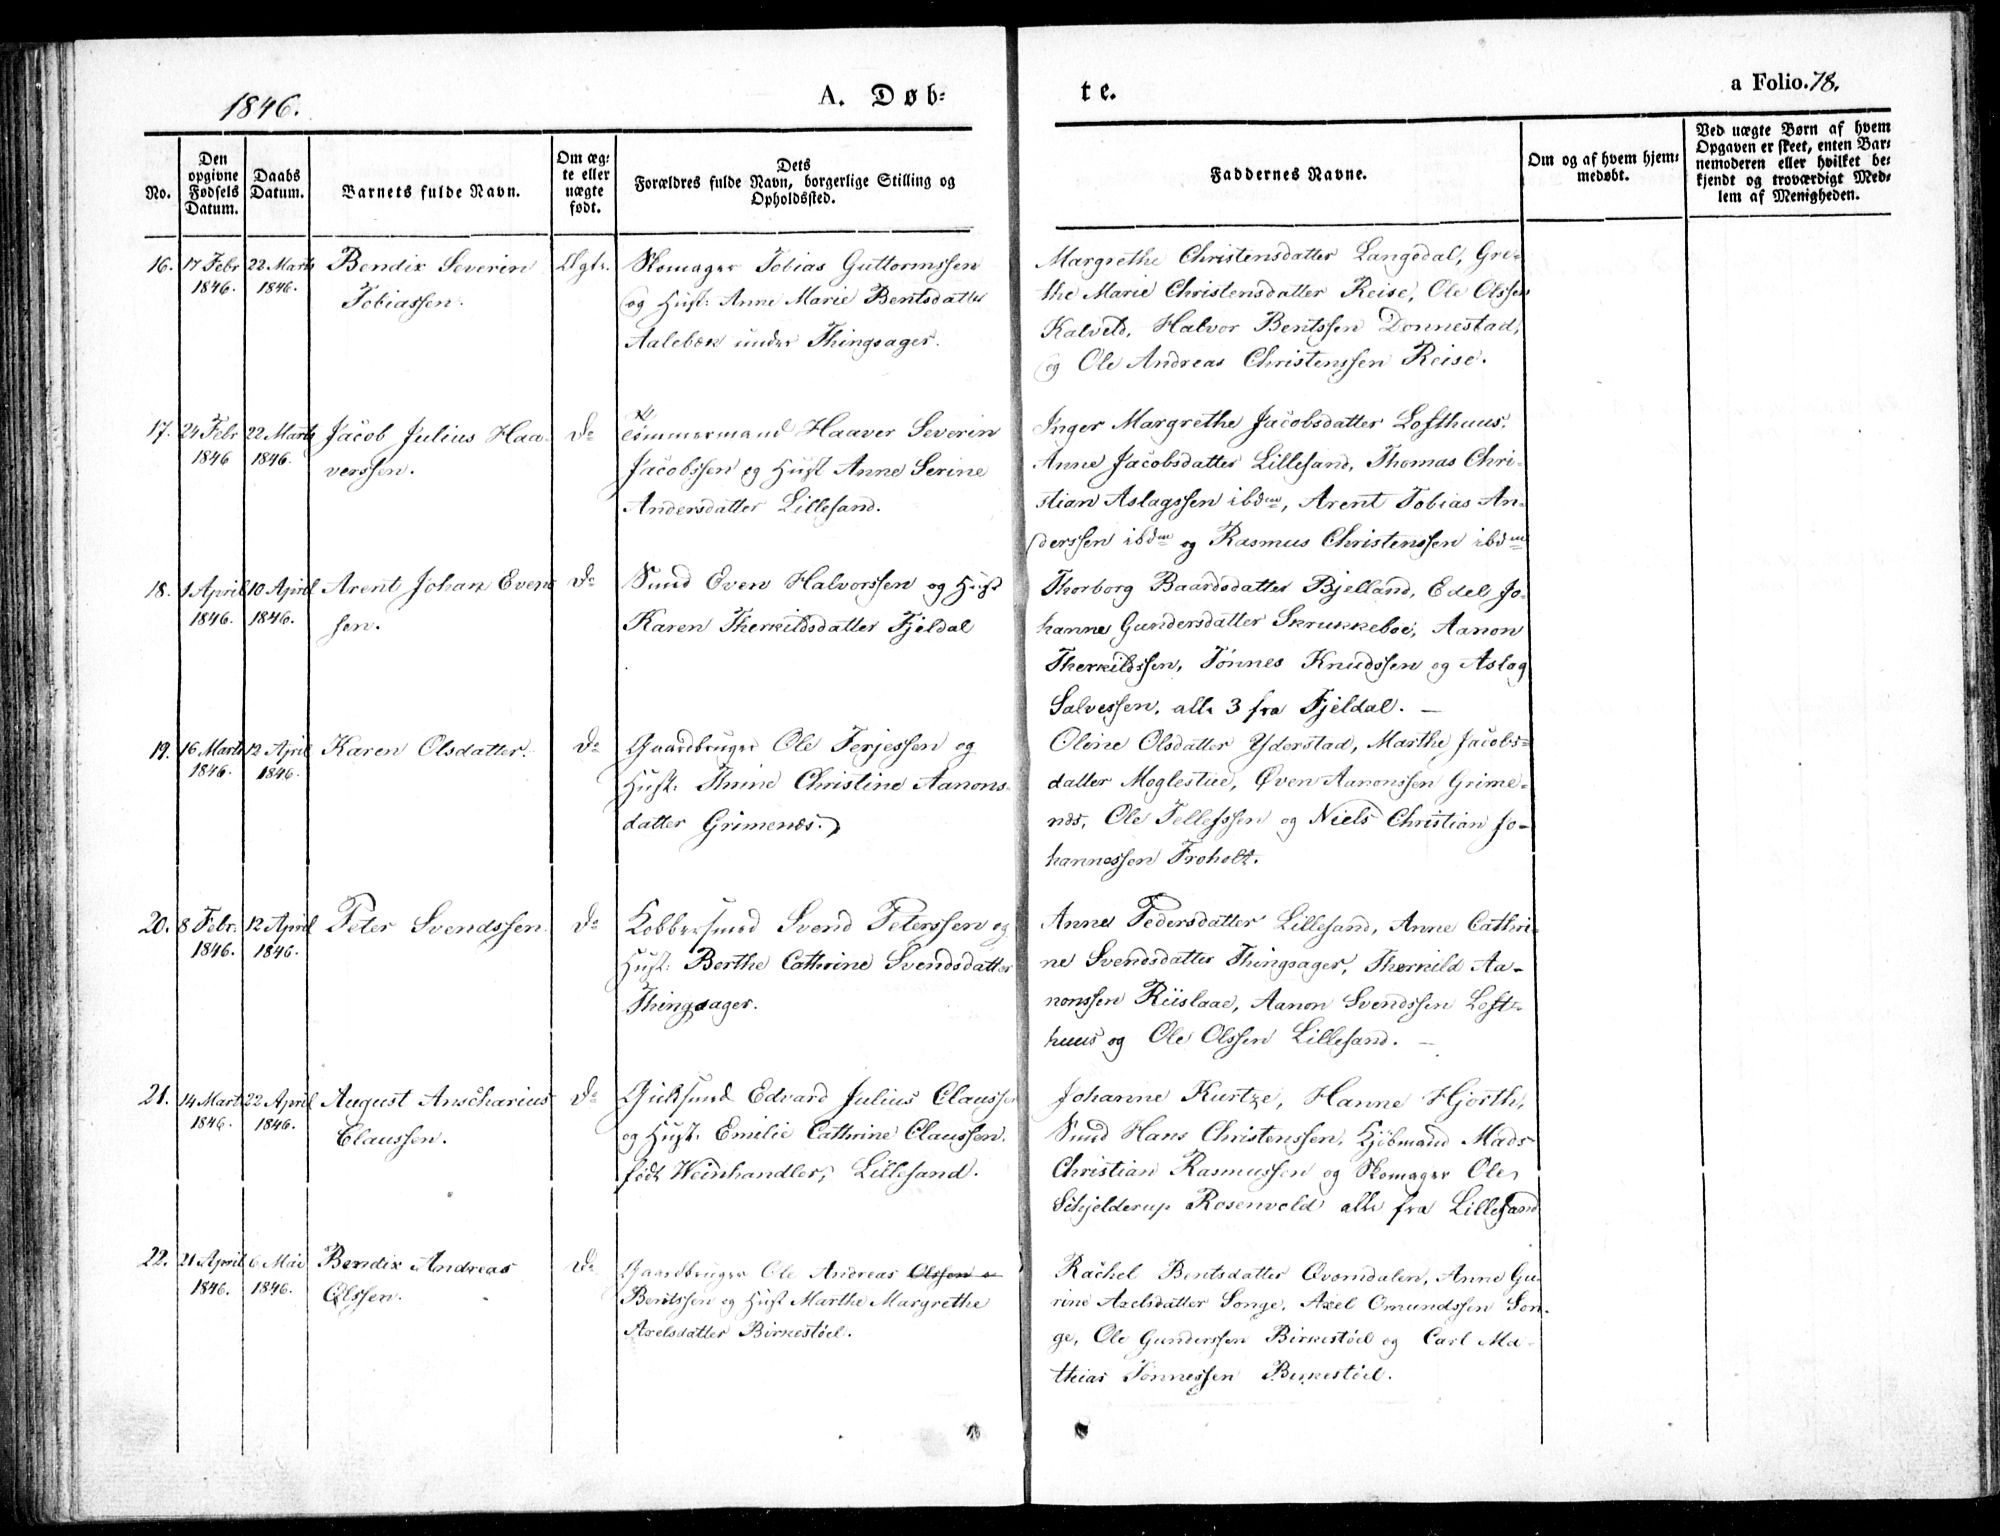 1846.
A. Døb-
te.
a Folio. 78.
No.
Den opgivne Fødsels Datum.
Daabs Datum.
Barnets fulde Navn.
Om æg-
te eller
uægte
født.
Dets
Forældres fulde Navn, borgerlige Stilling og
Opholdssted.
Faddernes Navne.
Om og af hvem hjem-
medøbt.
Ved uægte Børn af hvem
Opgaven er skeet, enten Bar-
nemoderen eller hvilket be-
kjendt og troværdigt Med-
lem af Menigheden.
16. 17 Febr 1846. 22 Marts 1846.
Bendix Severin
Tobiassen.
Ægte.
Skomager Tobias Guttormssen
og Hust: Anne Marie Bentsdatter
Aalebæk under Thingsager.
Margrethe Christensdatter Langedal, Gre-
the Marie Christensdatter Reise, Ole Olssen
Kalveld, Halvor Bentssen Donnestad,
og Ole Andreas Christenssen Reise.
17. 24 Febr 1846 22 Marts 1846.
Jacob Julius Haa-
verssen.
Do
Tømmermand Haaver Severin
Jacobssen og Hust Anne Serine
Andersdatter Lillesand.
Inger Margrethe Jacobsdatter Lofthuus,
Anne Jacobsdatter Lillesand, Thomas Chri-
stian Aslagssen ibdm, Arent Tobias An-
derssen ibdm og Rasmus Christenssen ibdm
18. 1 April 1846. 10 April 1846.
Arent Johan Evens
sen.
Do
Smd Even Halvorssen og Hust
Karen Therkildsdatter Fjeldal
Thorborg Baardsdatter Bjelland, Edel Jo-
hanne Gundersdatter Skrukkeboe, Aanon
Therkildssen, Tønnes Knudssen og Aslag
Salvessen, alle 3 fra Fjeldal. —
19. 16 Marts 1846. 12 April 1846.
Karen Olsdatter.
Do
Gaardbruger Ole Terjessen og
Hust: Thrine Christine Aanons-
datter Grimenes.
Oline Olsdatter Yderstad, Marthe Jacobs-
datter Moglestue, Øven Aanonssen Grime-
nes, Ole Tellefssen og Niels Christian Jo-
hannessen Froholt.
20. 8 Febr. 1846. 12 April 1846.
Peter Svendssen.
Do
Kobbersmed Svend Peterssen og
Hust: Berthe Cathrine Svendsdatter
Thingsager.
Anne Pedersdatter Lillesand, Anne Cathri-
ne Svendsdatter Thingsager, Therkild Aa-
nonssen Riislaae, Aanon Svendssen Loft-
huus og Ole Olssen Lillesand. —
21. 14 Marts 1846. 22 April 1846.
August Anscharius
Claussen.
Do
Gulsmed Edvard Julius Claussen
og Hust. Emilie Cathrine Claussen,
født Weinhandler, Lillesand.
Johanne Kurtze, Hanne Hjorth,
Smd Hans Christenssen, Kjøbmand Mads
Christian Rasmussen og Skomager Ole
Schjelderup Rosenvold alle fra Lillesand
22. 21 April 1846. 6 Mai 1846.
Bendix Andreas
Olssen.
Do
Gaardbruger Ole Andreas Olssen o
Bentssen og Hust Marthe Margrethe
Axelsdatter Birkestöel.
Rachel Bentsdatter Qvomdalen, Anne Gu-
rine Axelsdatter Songe, Axel Omundssen Son-
ge, Ole Gunderssen Birkestöel og Carl Ma-
thias Tonnessen Birkestöel.